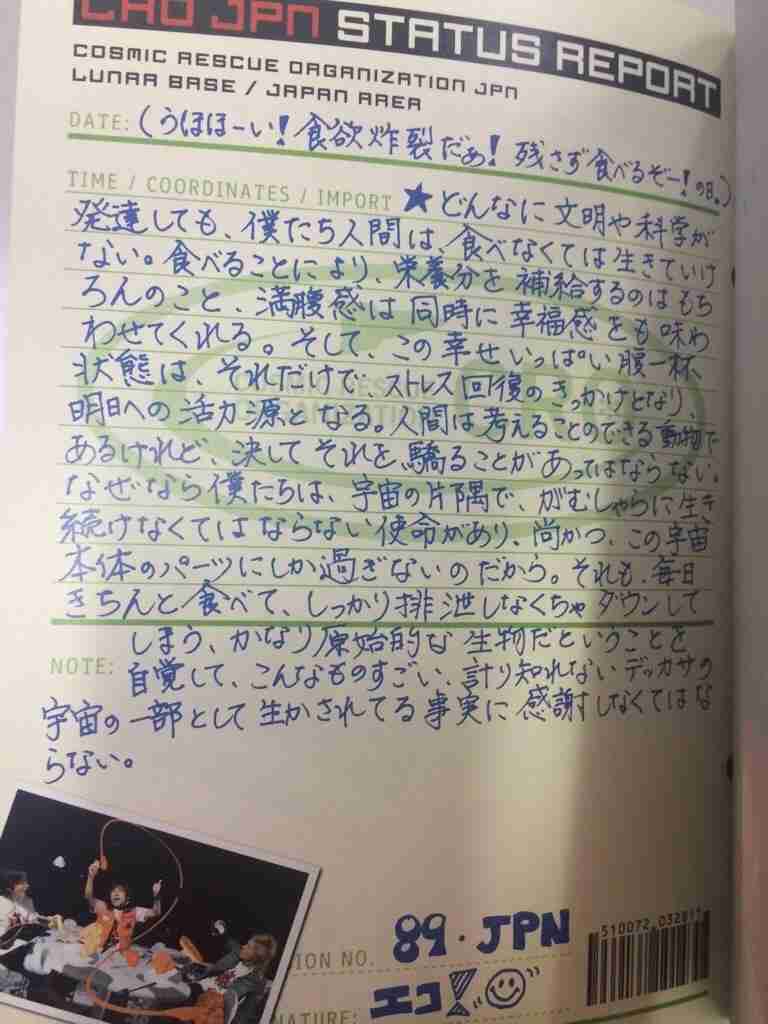 CRO JPN STATUS REPORT
COSMIC RESCUE ORGANIZATION JPN
LUNAR BASE / JAPAN AREA
DATE: (うほほーい!食欲炸裂だぁ!残さず食べるぞー!の日。)
TIME / COORDINATES / IMPORT ★どんなに文明や科学が
発達しても、僕たち人間は、食べなくては生きていけ
ない。食べることにより、栄養分を補給するのはもち
ろんのこと、満腹感は同時に幸福感をも味わ
わせてくれる。そして、この幸せいっぱい腹一杯
状態は、それだけで、ストレス回復のきっかけとなり、
明日への活力源となる。人間は考えることのできる動物で
あるけれど、決してそれを驕ることがあってはならない。
なぜなら僕たちは、宇宙の片隅で、がむしゃらに生き
続けなくてはならない使命があり、尚かつ、この宇宙
本体のパーツにしか過ぎないのだから。それも、毎日
きちんと食べて、しっかり排泄しなくちゃダウンして
しまう、かなり原始的な生物だということを
NOTE: 自覚して、こんなものすごい、計り知れないデッカサの
宇宙の一部として生かされてる事実に感謝しなくてはな
らない。
ION NO. 89.JPN
510072 03281
NATURE: エコ